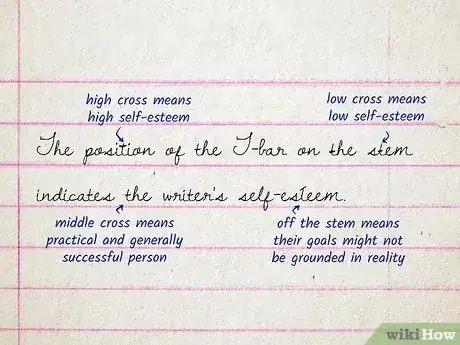 high cross means
high self-esteem
low cross means
low self-esteem
The position of the T-bar on the stem
indicates the writer's self-esteem.
middle cross means
practical and generally
successful person
off the stem means
their goals might not
be grounded in reality
wikiHow